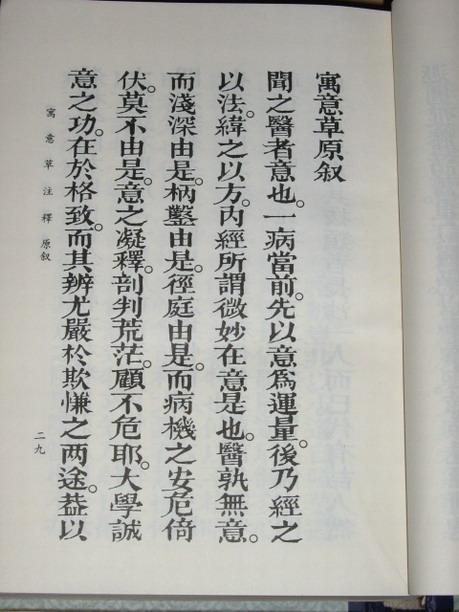 寓意草原叙
聞之醫者意也。一病當前。先以意爲運量。後乃經之
以法。緯之以方。内經所謂微妙在意是也。醫孰無意。
而淺深由是。枘鑿由是。徑庭由是。而病機之安危倚
伏。莫不由是。意之凝釋。剖判荒茫。顧不危耶。大學誠
意之功。在於格致。而其辨尤嚴於欺慊之两途。葢以
寓意草注釋 原叙
二九